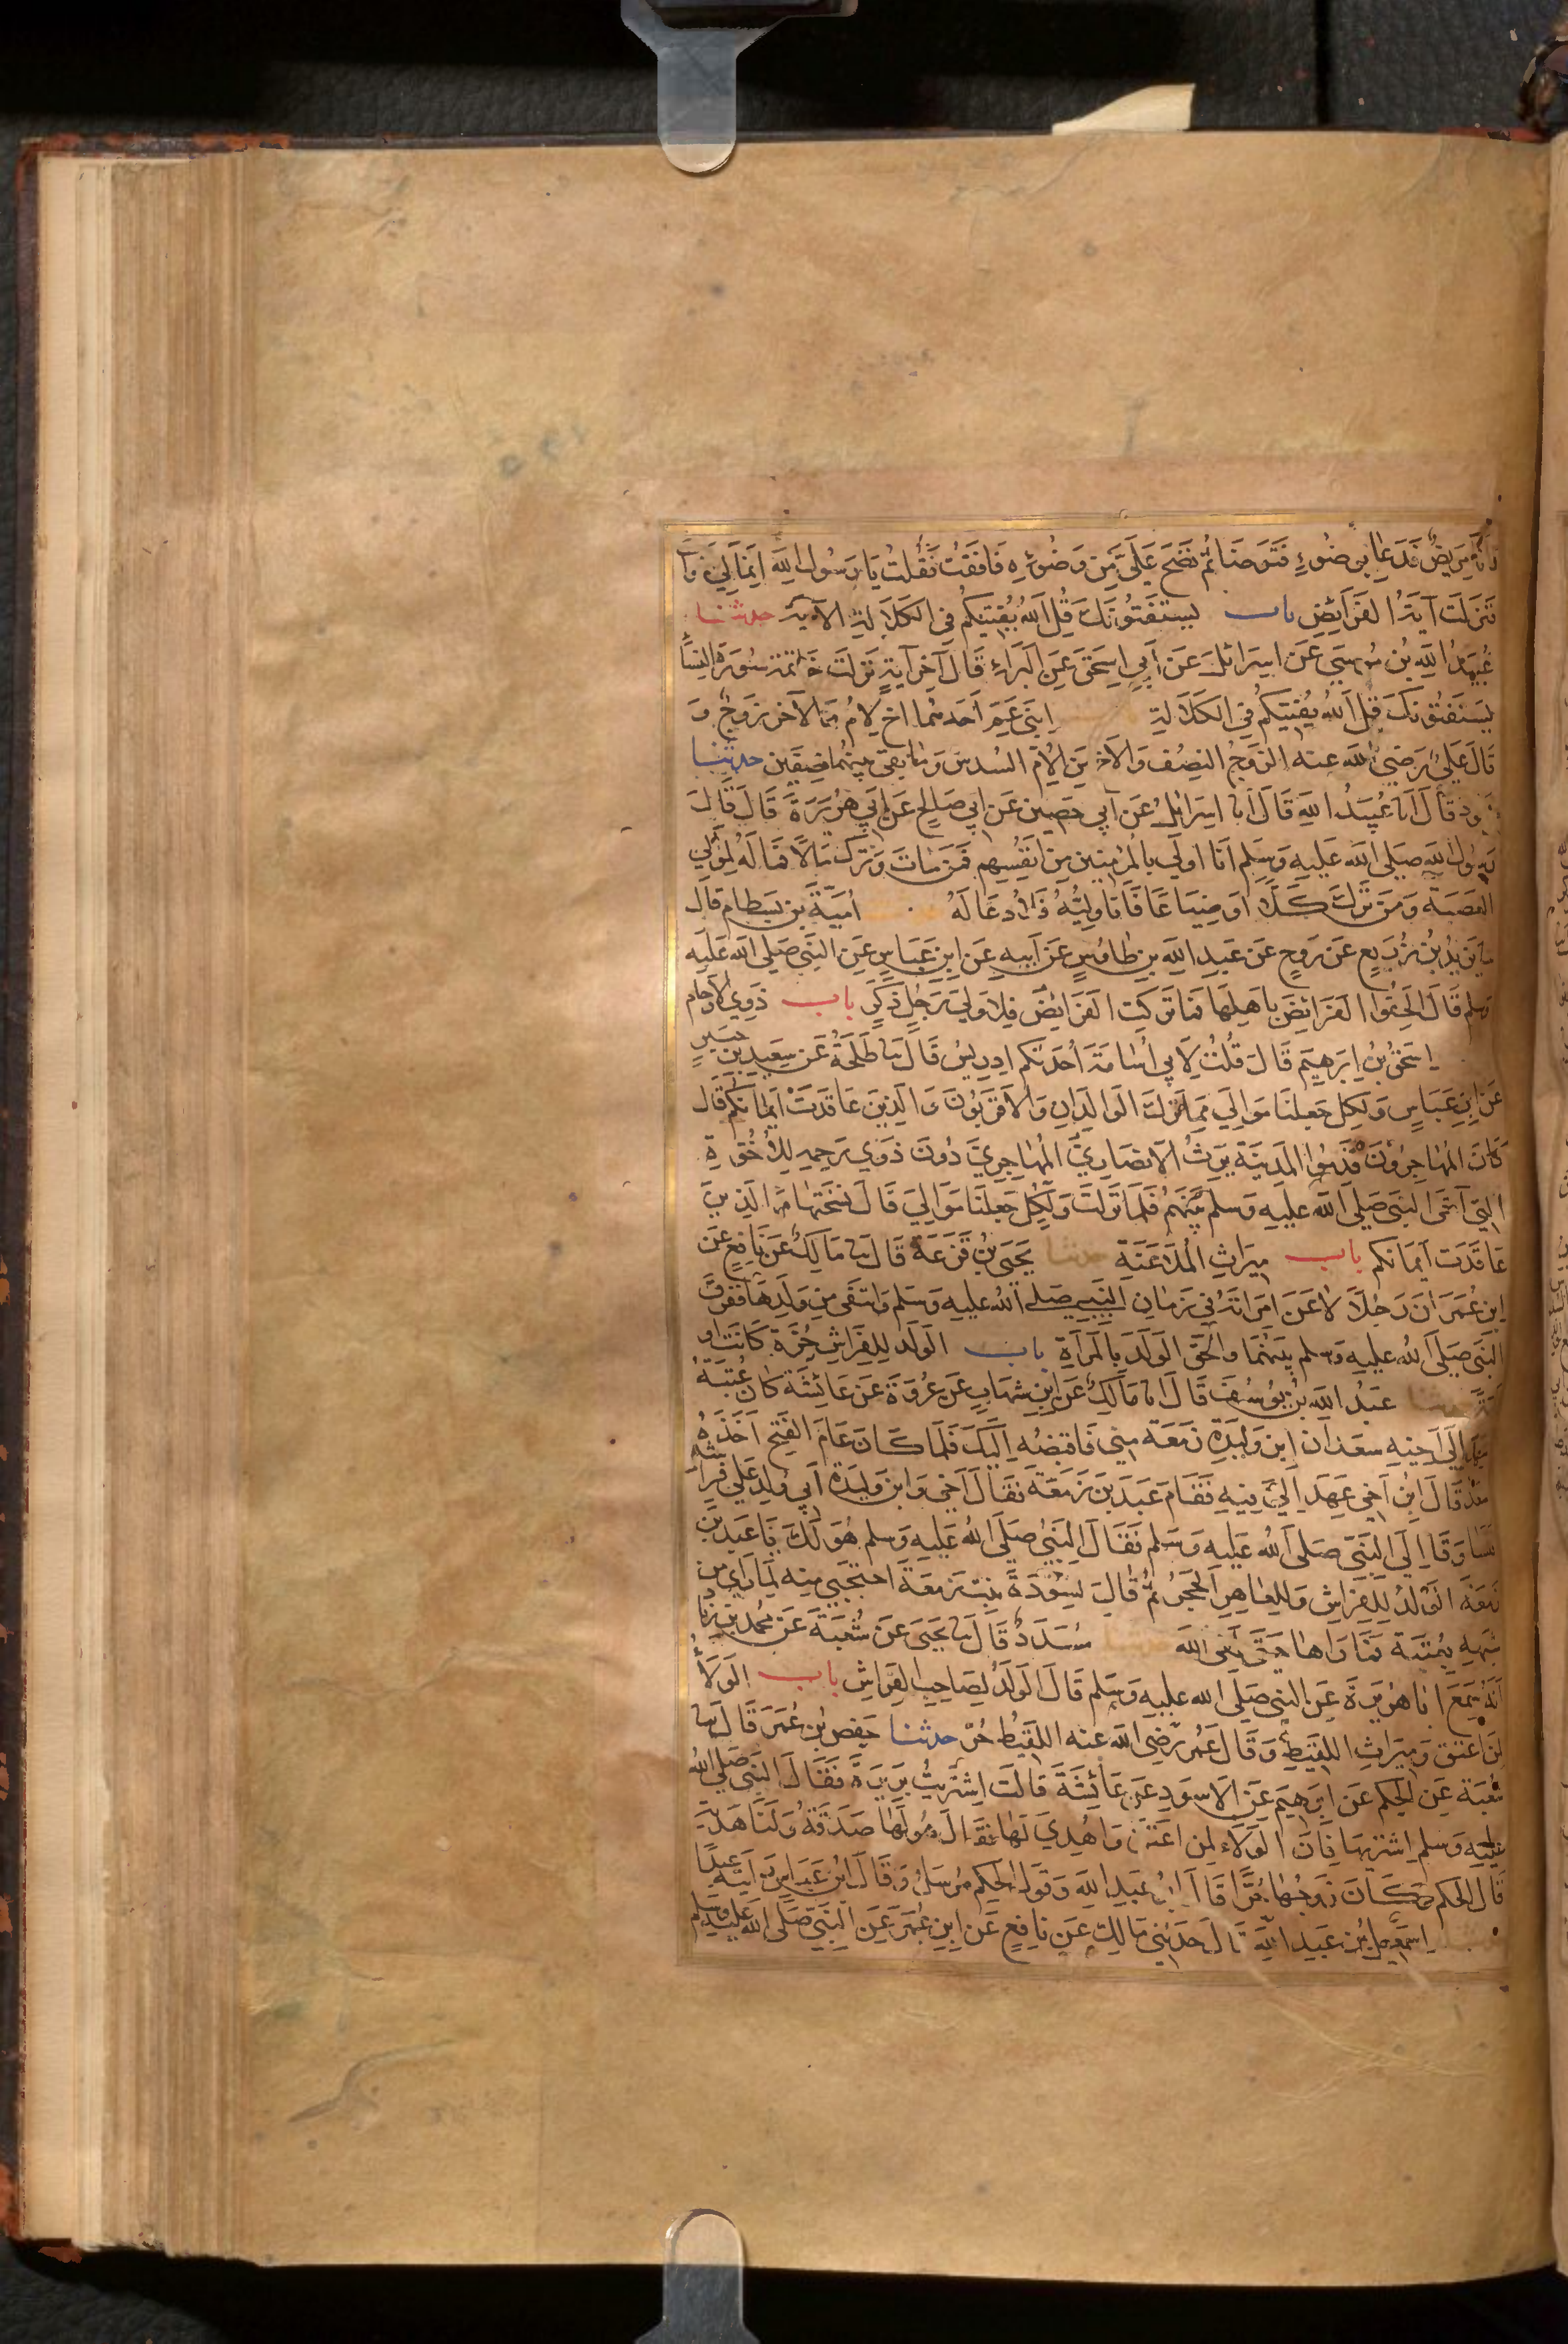 وانا مريض فدعا بوضوء فتوضا ثم نضح علي من وضوئه فافقت فقلت يا رسول الله انما لي
فنزلت آية الفرائض باب يستفتونك قل الله يفتيكم في الكلالة الآية حدثنا
عبيد الله بن موسى عن اسرائيل عن أبي اسحق عن البراء قال آخر آية نزلت خاتمة سورة النساء
يستفتونك قل الله يفتيكم في الكلالة ابني عم أحدهما اخ لام والآخر زوج و
قال علي رضي الله عنه الزوج النصف والاخ من الام السدس وما بقي بينهما نصفين حدثنا
قال انا عبيد الله قال انا اسرائيل عن أبي حصين عن ابي صالح عن ابي هريرة قال قال
رسول الله صلى الله عليه وسلم انا اولى بالمؤمنين من انفسهم فمن مات وترك مالا فماله لموالي
العصبة ومن ترك كلا او ضياعا فانا وليه فلادعا له امية بن بسطام قال
نا يزيد بن زريع عن روح عن عبد الله بن طاوس عن أبيه عن ابن عباس عن النبي صلى الله عليه
وسلم قال الحقوا الفرائض باهلها فما تركت الفرائض فلاولى رجل ذكر باب ذوي الارحام
اسحق بن ابرهيم قال قلت لابي اسامة أحدثكم ادريس قال نا طلحة عن سعيد بن جبير
عن ابن عباس ولكل جعلنا موالي مما ترك الوالدان والاقربون والذين عاقدت ايمانكم قال
كان المهاجرون قدموا المدينة يرث الانصاري المهاجري دون ذوي رحمه للاخوة
التي آخى النبي صلى الله عليه وسلم بينهم فلما نزلت ولكل جعلنا موالي قال نسختها والذين
عاقدت أيمانكم باب ميراث الملاعنة حدثنا يحيى بن قزعة قال نا مالك عن نافع عن
ابن عمر ان رجلا لاعن امراته في زمان النبي صلى الله عليه وسلم وانتفى من ولدها ففرق
النبي صلى الله عليه وسلم بينهما والحق الولد بالمرأة باب الولد للفراش حرة كانت او
امة حدثنا عبد الله بن يوسف قال انا مالك عن ابن شهاب عن عروة عن عائشة كان عتبة
عهد الى اخيه سعد ان ابن وليدة زمعة مني فاقبضه اليك فلما كان عام الفتح أخذه
سعد قال ابن أخي عهد الي فيه فقام عبد بن زمعة فقال أخي وابن وليدة أبي ولد على فراشه
فتساوقا الى النبي صلى الله عليه وسلم فقال النبي صلى الله عليه وسلم هو لك يا عبد بن
زمعة الولد للفراش وللعاهر الحجر ثم قال لسودة بنت زمعة احتجبي منه لما راى من
شبهه بعتبة فما راها حتى لقي الله مسدد قال نا يحيى عن شعبة عن محمد بن زياد
أنه سمع ابا هريرة عن النبي صلى الله عليه وسلم قال الولد لصاحب الفراش باب الولاء
لمن اعتق وميراث اللقيط وقال عمر رضي الله عنه اللقيط حر حدثنا حفص بن عمر قال نا
شعبة عن الحكم عن ابرهيم عن الاسود عن عائشة قالت اشتريت بريرة فقال النبي صلى الله
عليه وسلم اشتريها فان الولاء لمن اعتق واهدي لها فقال هو لها صدقة ولنا هدية
قال الحكم وكان زوجها حرا قال أبو عبد الله وقول الحكم مرسل وقال ابن عباس رايته عبدا
اسمعيل بن عبد الله قال حدثني مالك عن نافع عن ابن عمر عن النبي صلى الله عليه وسلم